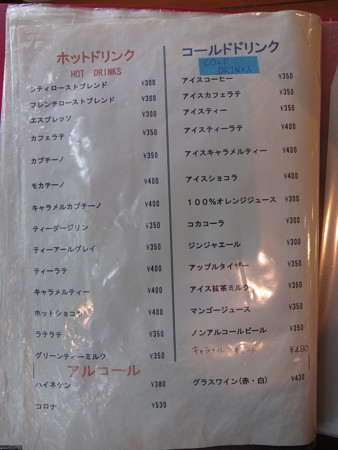 ホットドリンク
HOT DRINKS
シティローストブレンド ¥300
フレンチローストブレンド ¥300
エスプレッソ ¥300
カフェラテ ¥350
カプチーノ ¥350
モカチーノ ¥400
キャラメルカプチーノ ¥400
ティーダージリン ¥350
ティーアールグレイ ¥350
ティーラテ ¥400
キャラメルティー ¥400
ホットショコラ ¥400
ラテラテ ¥350
グリーンティーミルク ¥350
アルコール
ハイネケン ¥380
コロナ ¥530
コールドドリンク
COLD
DRINKS
アイスコーヒー ¥350
アイスカフェラテ ¥350
アイスティー ¥350
アイスティーラテ ¥400
アイスキャラメルティー ¥400
アイスショコラ ¥400
100%オレンジジュース ¥300
コカコーラ ¥350
ジンジャエール ¥350
アップルタイザー ¥350
アイス抹茶ミルク ¥350
マンゴージュース ¥350
ノンアルコールビール ¥350
¥480
グラスワイン(赤・白) ¥430